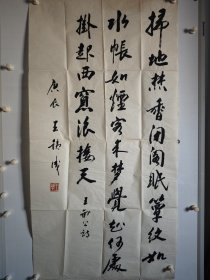 掃地焚香閉閣眠簟紋如
水帳如煙客来夢覺知何處
掛起西窓浪接天
王勃公詩
庚辰 王